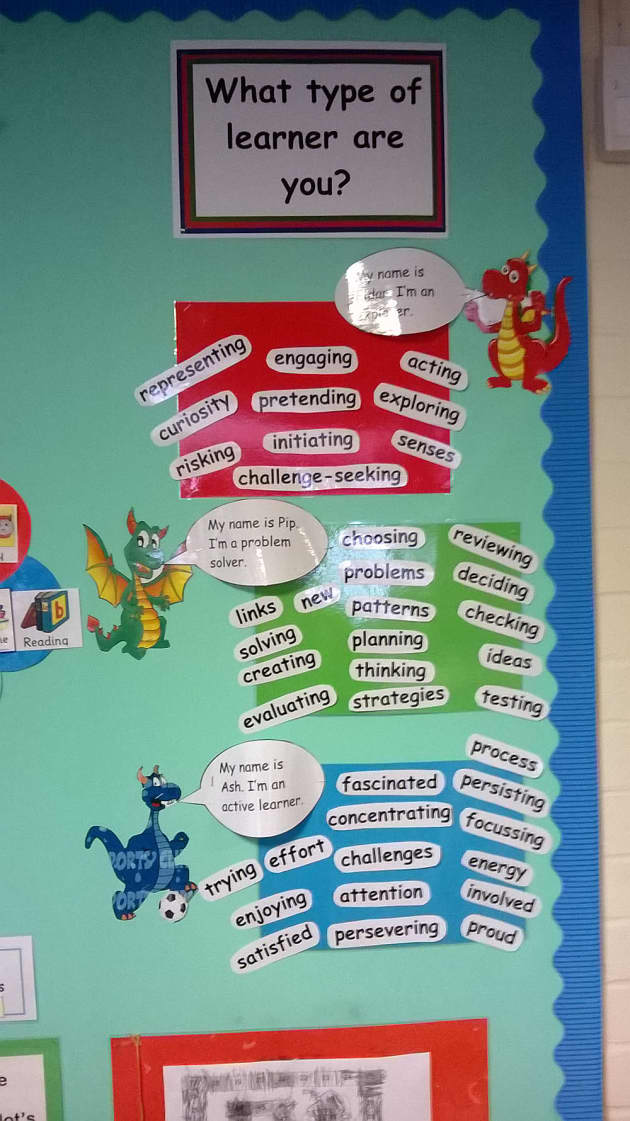 What type of
learner are
you?
My name is
I'm an
representing
engaging
acting
curiosity
pretending
exploring
risking
initiating
senses
challenge-seeking
My name is Pip.
I'm a problem
solver.
choosing
reviewing
problems
deciding
links
new
patterns
checking
solving
planning
ideas
creating
thinking
evaluating
strategies
testing
Reading
My name is
Ash. I'm an
active learner.
process
fascinated
persisting
concentrating
focussing
trying
effort
challenges
energy
enjoying
attention
involved
satisfied
persevering
proud